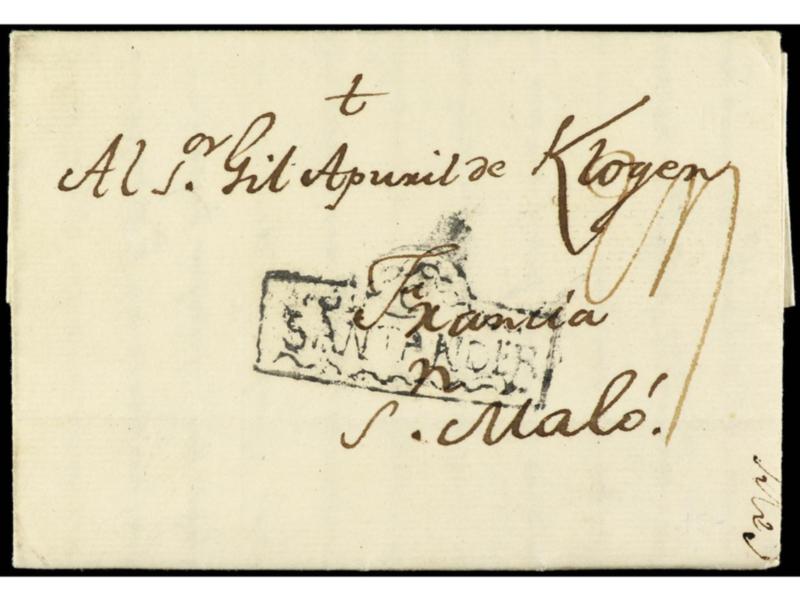 t
Al S.or Gil Apuril de Klogen
Francia
SANTANDER
n
S. Maló.